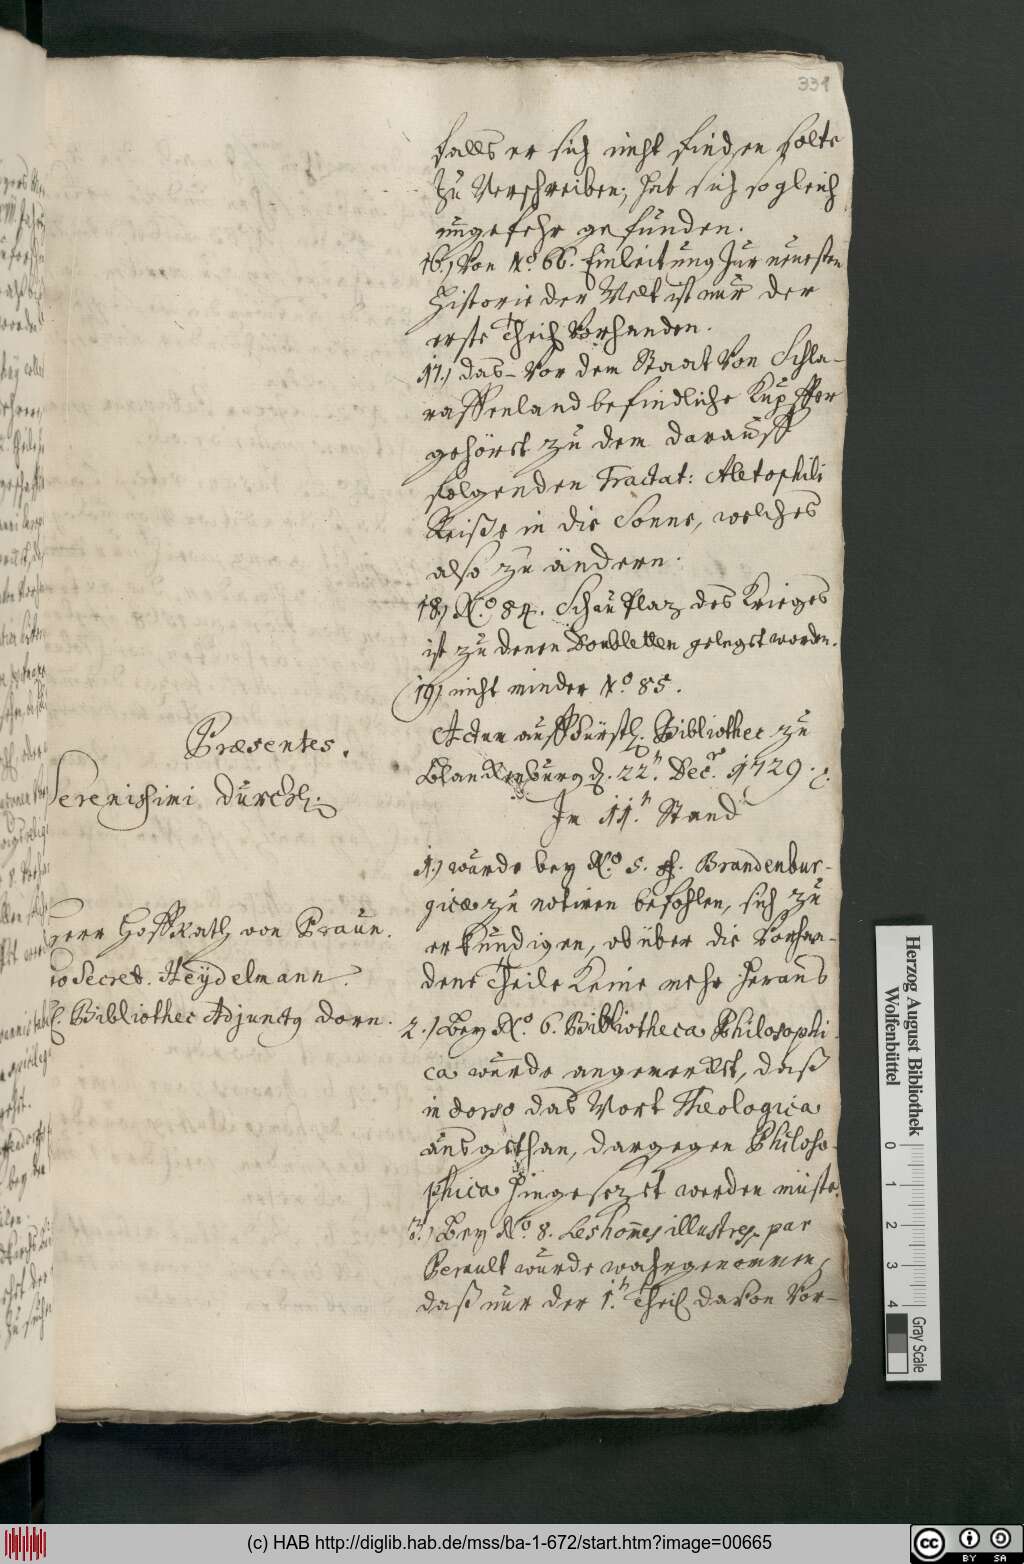 331
falls er sich nicht finden solte
zu Verschreiben; hat sich sogleich
ungefehr gefunden.
16.) Von No. 66. Einleitung zur neuesten
Historie der Welt ist nur der
erste Theil Vorhanden.
17.) das vor dem Staat von Schla-
raffenland befindliche Kupffer
gehört zu dem darauff
folgenden Tractat: Aletophili
Reise in die Sonne, welches
also zu ändern.
18) No. 84. SchauPlaz des Krieges
ist zu denen Doubletten gelegt worden.
19) nicht minder No. 85.
Præsentes.
Serenissimi Durchl.
Herr HoffRath von Praun.
Secret. Heÿdelmann.
Bibliothec Adjunctg dorn.
Actum auff Fürstl. Bibliothec zu
Blanckenburg d. 22n. Decr. 1729.
In 11n. Stand
1.) wurde bey No. 5. Brandenbur-
gica zu notiren befohlen, sich zu
erkundigen, ob über die Vorhan-
dene Theile Keine mehr heraus
2.) Bey No. 6. Bibliotheca Philosophi-
ca wurde angemerckt, daß
in dorso das Wort Theologica
ausgethan, dargegen Philoso-
phica hingesezet werden müste.
3.) Bey No. 8. Les hom̄es illustres par
Perault wurde wahrgenommen,
daß nur der 1n. Theil davon Vor-
Herzog August Bibliothek
Wolfenbüttel
0 1 2 3 4
Gray Scale
(c) HAB http://diglib.hab.de/mss/ba-1-672/start.htm?image=00665
CC BY SA